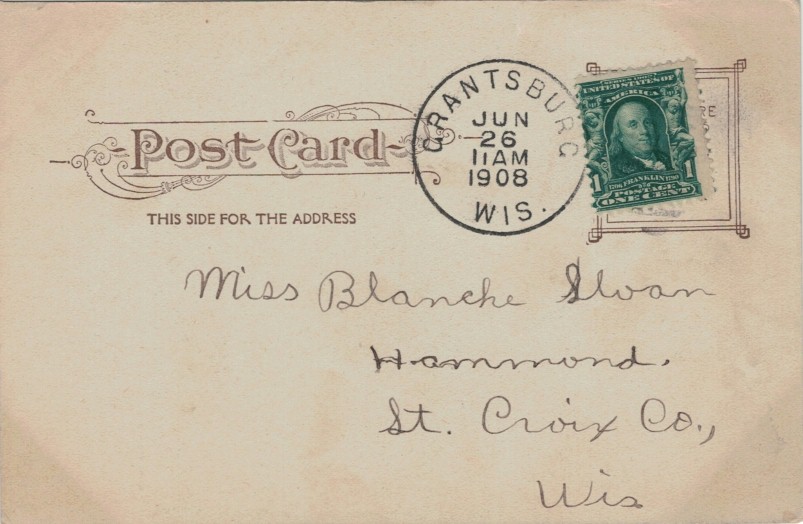 Post Card
THIS SIDE FOR THE ADDRESS
GRANTSBURG
JUN
26
11AM
1908
WIS.
SERIES 1902
UNITED STATES OF
AMERICA
1706 FRANKLIN 1790
1 POSTAGE 1
ONE CENT
RE
Miss Blanche Sloan
Hammond.
St. Croix Co.,
Wis